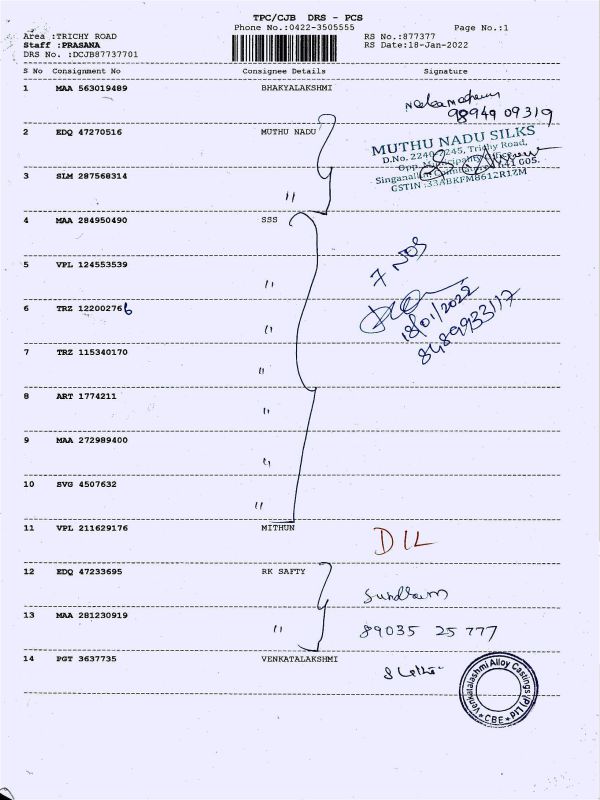 TPC/CJB DRS - PCS
Phone No.:0422-3505555 Page No.:1
Area :TRICHY ROAD RS No.:877377
Staff :PRASANA RS Date:18-Jan-2022
DRS No. :DCJB87737701
S No Consignment No Consignee Details Signature
1 MAA 563019489 BHAKYALAKSHMI
98949 09319
2 EDQ 47270516 MUTHU NADU
MUTHU NADU SILKS
D.No. 2240-2245, Trichy Road,
Opp. Municipality Office
3 SLM 287568314 "
Singanallur, Coimbatore - 641 005.
GSTIN :33ABKFM8612R1ZM
4 MAA 284950490 SSS
7 NOS
5 VPL 124553539 "
6 TRZ 122002766 "
18/01/2022
8489933117
7 TRZ 115340170 "
8 ART 1774211 "
9 MAA 272989400 "
10 SVG 4507632 "
11 VPL 211629176 MITHUN DIL
12 EDQ 47233695 RK SAFTY
13 MAA 281230919 " 89035 25 777
14 PGT 3637735 VENKATALAKSHMI
Venkatalashmi Alloy Castings (P) Ltd
* CBE *